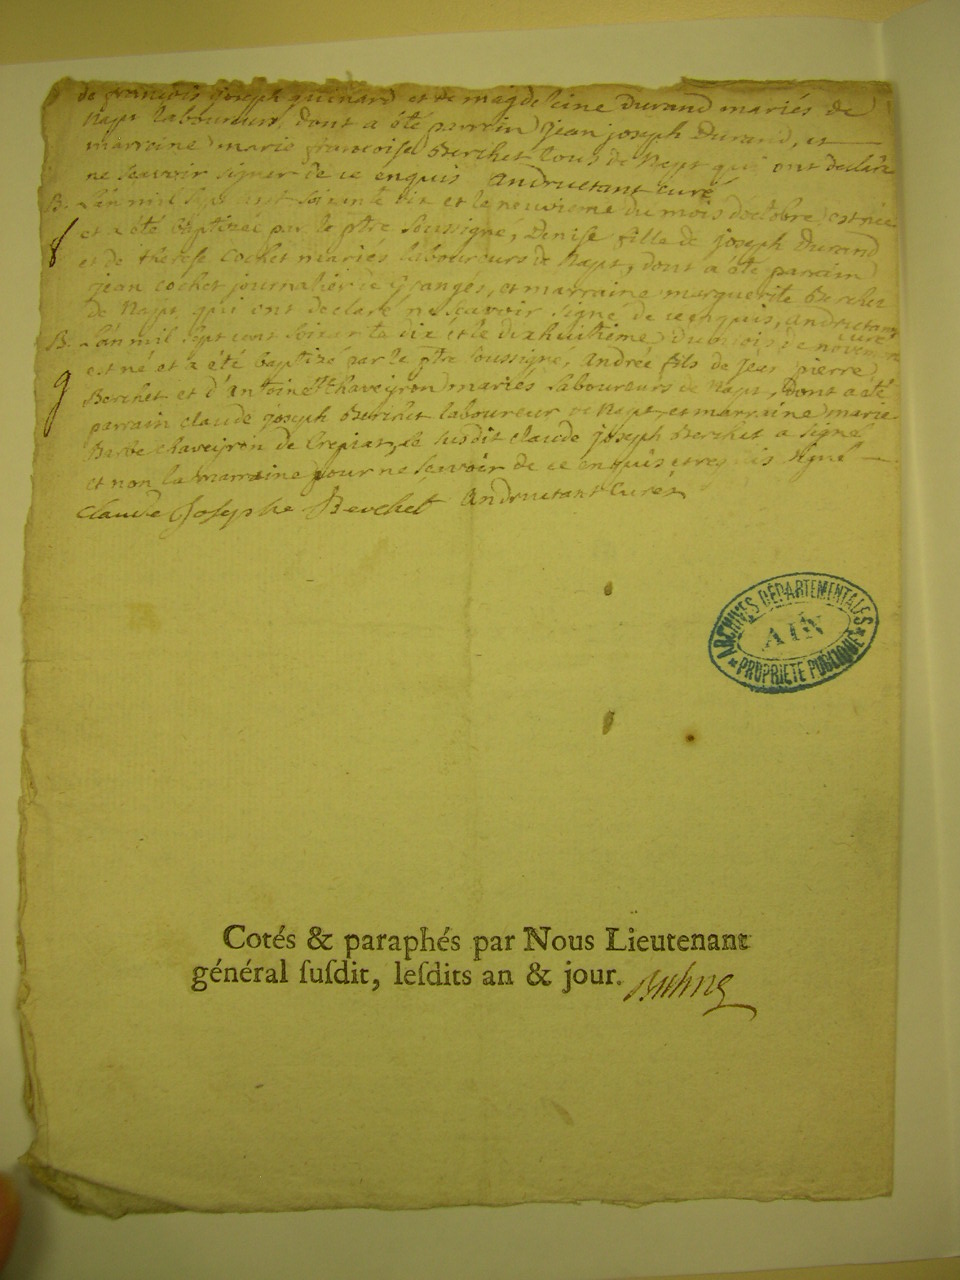 de françois joseph guinard et de magdeleine durand mariés de
Napt laboureurs, dont a été parrain jean joseph durand, et
marraine marie francoise Berchet tous de Napt qui ont declaré
ne scavoir signer de ce enquis andructant curé
B. L'an mil sept cent soixante dix et le neuvieme du mois doctobre est née
8 et a été baptizée par le ptre soussigné, Denise fille de joseph Durand
et de therese cochet mariés laboureurs de Napt, dont a été parrain
jean cochet journalier de granges, et marraine marguerite Berchet
de Napt, qui ont declaré ne scavoir signe de ce enquis, andructant
curé
B. L'an mil sept cent soixante dix et le dixhuitieme du mois de novembre
est né et a été baptizé par le ptre soussigné, andré fils de jean pierre
9 Berchet et d'antoine chaveyron mariés laboureurs de Napt, dont a été
parrain claude joseph Berchet laboureur de Napt, et marraine marie
Barbe chaveyron de Crepiat, le susdit claude joseph Berchet a signé
et non la marraine pour ne scavoir de ce enquis signé
Claude Josephe Berchet andructant Curé
ARCHIVES DÉPARTEMENTALES
AIN
PROPRIÉTÉ PUBLIQUE
Cotés & paraphés par Nous Lieutenant
général ſuſdit, leſdits an & jour.